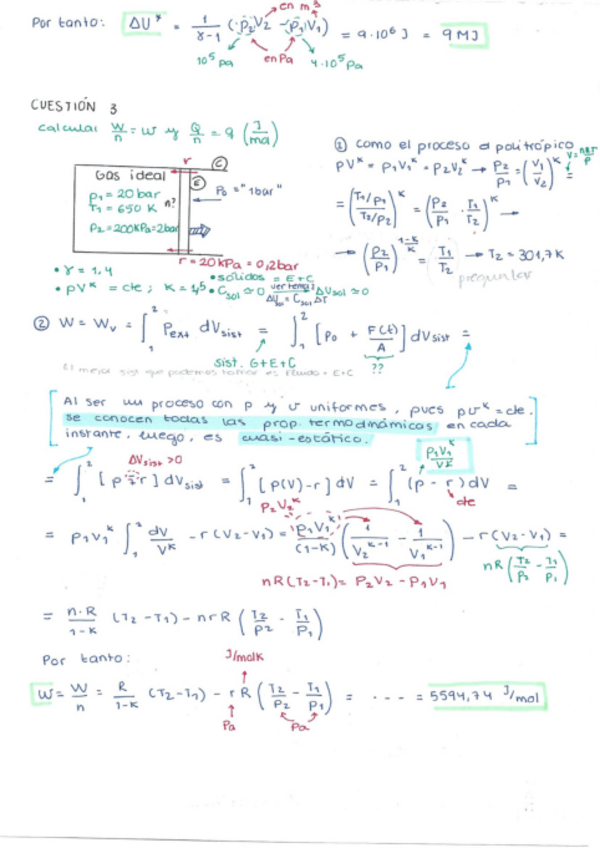 Por tanto: ΔU* = 1/(γ-1) (P₂V₂ - P₁V₁) = 9·10⁶ J = 9 MJ
en m³
10⁵ Pa en Pa 4·10⁵ Pa
CUESTIÓN 3
Calcular W/n = w y Q/n = q (J/mol)
Gas ideal
P₁ = 20 bar
T₁ = 650 K n?
P₂ = 200 kPa = 2 bar
r
C
E
P₀ = "1 bar"
r = 20 kPa = 0,2 bar
• γ = 1,4
• sólidos = E + C
• PVᴷ = cte; K = 1,5 • C_sol ≃ 0 ver tema 2 ΔU_sol ≃ 0
ΔU_sol = C_sol ΔT
① Como el proceso a politrópico
PVᴷ = P₁V₁ᴷ = P₂V₂ᴷ → P₂/P₁ = (V₁/V₂)ᴷ =
V = nRT/P
= ((T₁/P₁)/(T₂/P₂))ᴷ = (P₂/P₁ · T₁/T₂)ᴷ →
→ (P₂/P₁)^((1-K)/K) = (T₁/T₂) → T₂ = 301,7 K
preguntar
② W = W_v = ∫₁² P_ext dV_sist = ∫₁² [P₀ + F(t)/A] dV_sist =
sist. G+E+C
??
El mejor sist que podemos tomar es Fluido + E+C
Al ser un proceso con p y v uniformes, pues pvᴷ = cte.
se conocen todas las prop. termodinámicas en cada
instante, luego, es cuasi-estático.
ΔV_sist > 0
P₁V₁ᴷ/Vᴷ
= ∫₁² [p - r] dV_sist = ∫₁² [p(V) - r] dV = ∫₁² (p - r) dV =
cte
P₂V₂ᴷ
= P₁V₁ᴷ ∫₁² dV/Vᴷ - r(V₂-V₁) = P₁V₁ᴷ/(1-K) (1/V₂ᴷ⁻¹ - 1/V₁ᴷ⁻¹) - r(V₂-V₁) =
nR(T₂-T₁) = P₂V₂ - P₁V₁
nR(T₂/P₂ - T₁/P₁)
= n·R/(1-K) (T₂-T₁) - nrR (T₂/P₂ - T₁/P₁)
Por tanto:
J/molK
W = W/n = R/(1-K) (T₂-T₁) - rR (T₂/P₂ - T₁/P₁) = - - - - = 5594,74 J/mol
Pa Pa